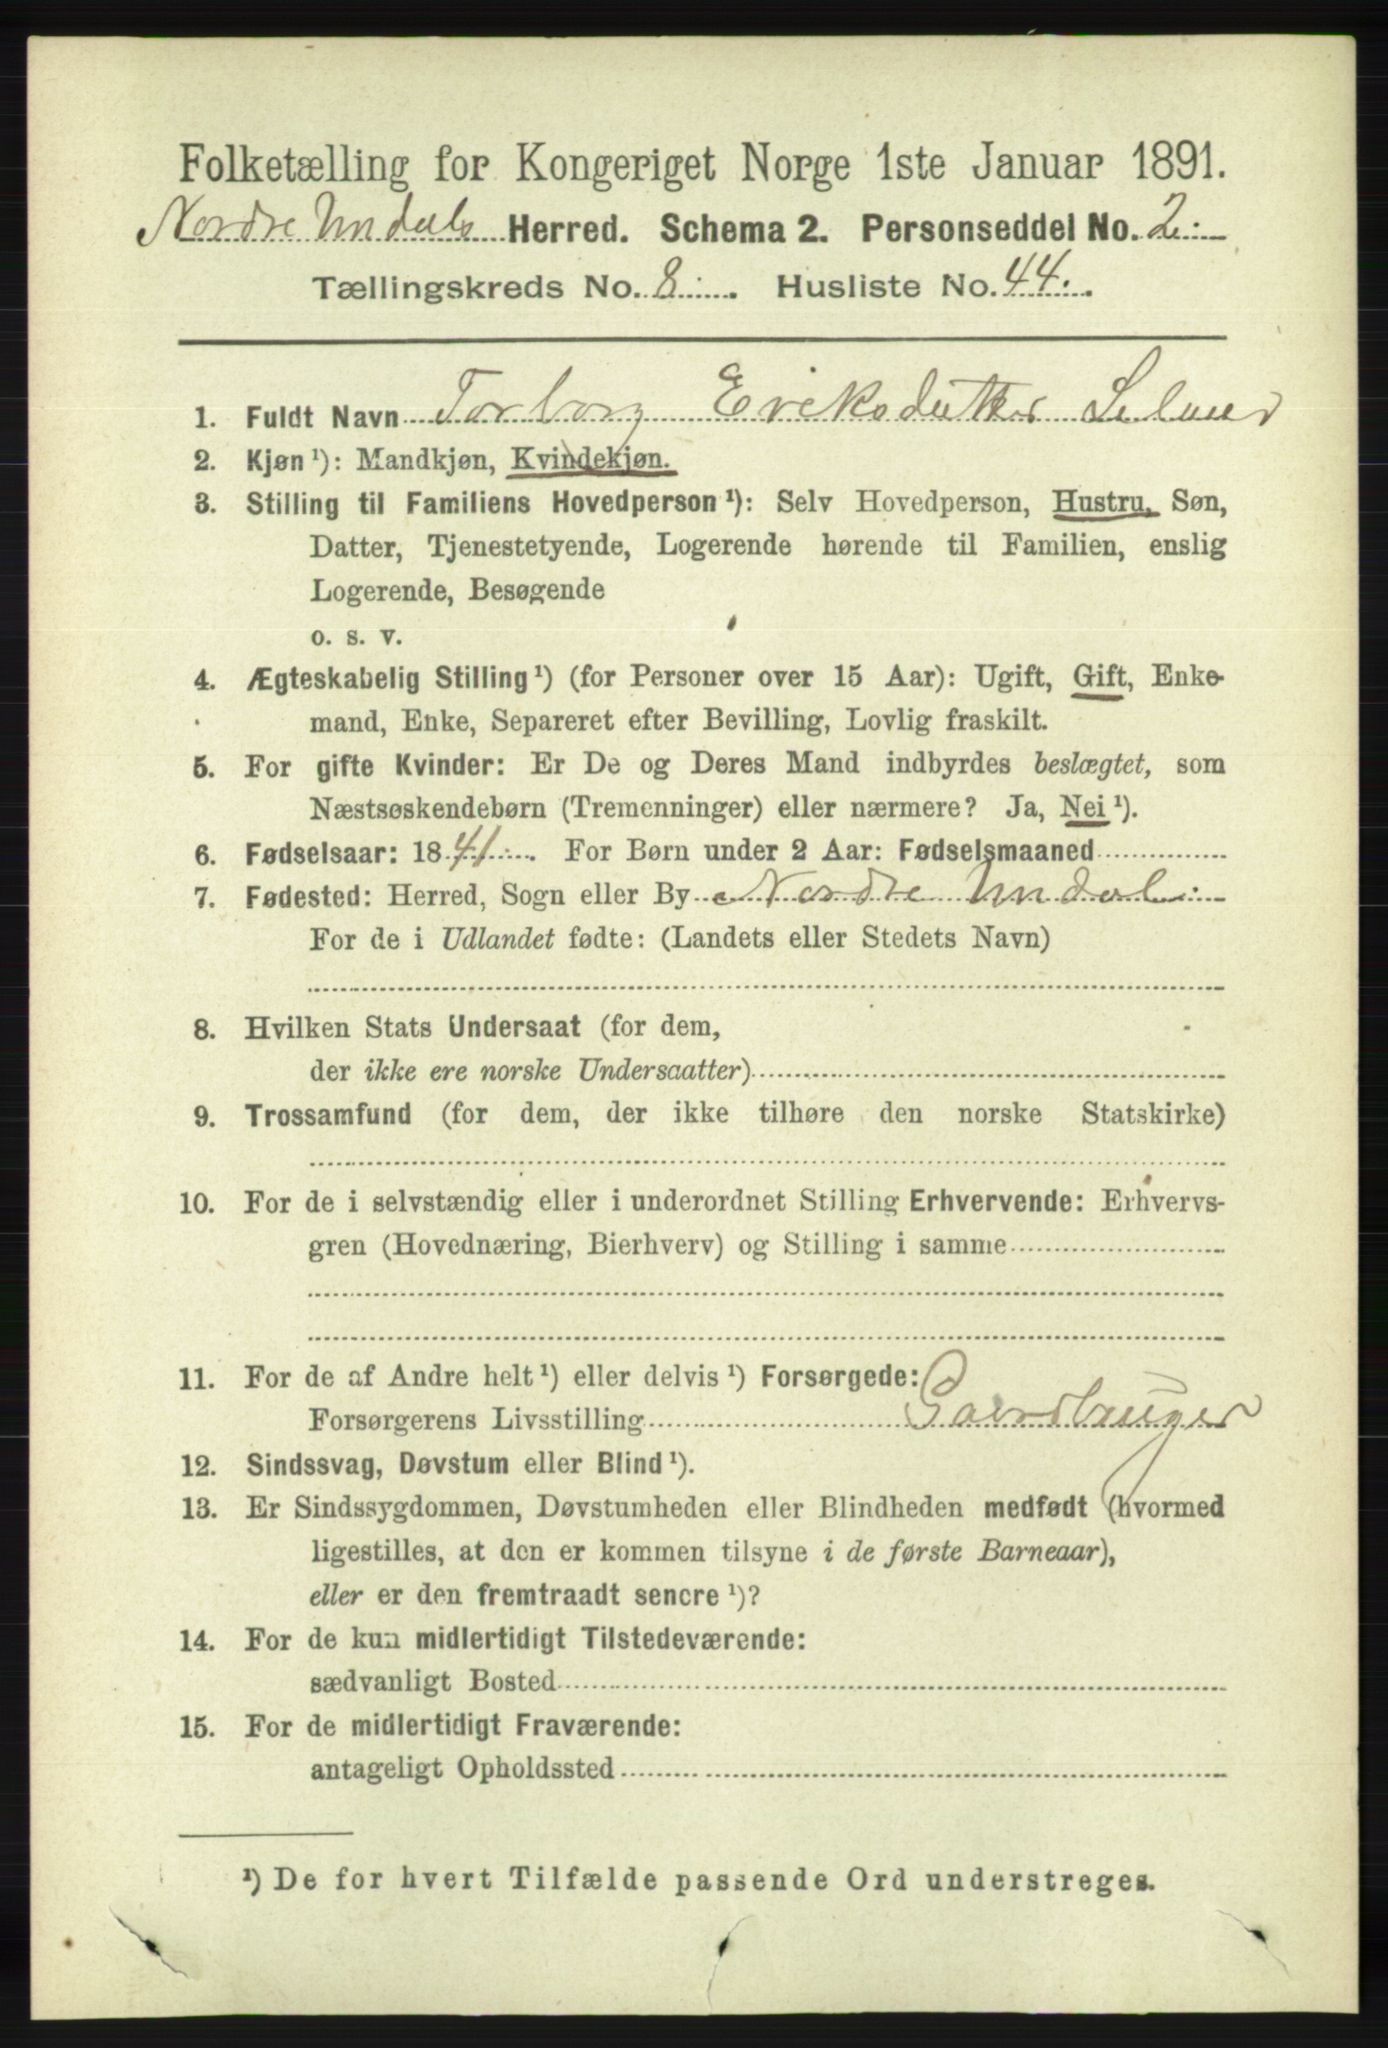 Folketælling for Kongeriget Norge 1ste Januar 1891.
Nordre Undals Herred. Schema 2. Personseddel No. 2
Tællingskreds No. 8. Husliste No. 44.
1. Fuldt Navn Torborg Eriksdatter
2. Kjøn ¹): Mandkjøn, Kvindekjøn.
3. Stilling til Familiens Hovedperson ¹): Selv Hovedperson, Hustru, Søn,
Datter, Tjenestetyende, Logerende hørende til Familien, enslig
Logerende, Besøgende
o. s. v.
4. Ægteskabelig Stilling ¹) (for Personer over 15 Aar): Ugift, Gift, Enke-
mand, Enke, Separeret efter Bevilling, Lovlig fraskilt.
5. For gifte Kvinder: Er De og Deres Mand indbyrdes beslægtet, som
Næstsøskendebørn (Tremenninger) eller nærmere? Ja, Nei ¹).
6. Fødselsaar: 1841. For Børn under 2 Aar: Fødselsmaaned
7. Fødested: Herred, Sogn eller By Nordre Undal
For de i Udlandet fødte: (Landets eller Stedets Navn)
8. Hvilken Stats Undersaat (for dem,
der ikke ere norske Undersaatter)
9. Trossamfund (for dem, der ikke tilhøre den norske Statskirke)
10. For de i selvstændig eller i underordnet Stilling Erhvervende: Erhvervs-
gren (Hovednæring, Bierhverv) og Stilling i samme
11. For de af Andre helt ¹) eller delvis ¹) Forsørgede:
Forsørgerens Livsstilling Gaardbruger
12. Sindssvag, Døvstum eller Blind ¹).
13. Er Sindssygdommen, Døvstumheden eller Blindheden medfødt (hvormed
ligestilles, at den er kommen tilsyne i de første Barneaar),
eller er den fremtraadt senere ¹)?
14. For de kun midlertidigt Tilstedeværende:
sædvanligt Bosted
15. For de midlertidigt Fraværende:
antageligt Opholdssted
¹) De for hvert Tilfælde passende Ord understreges.